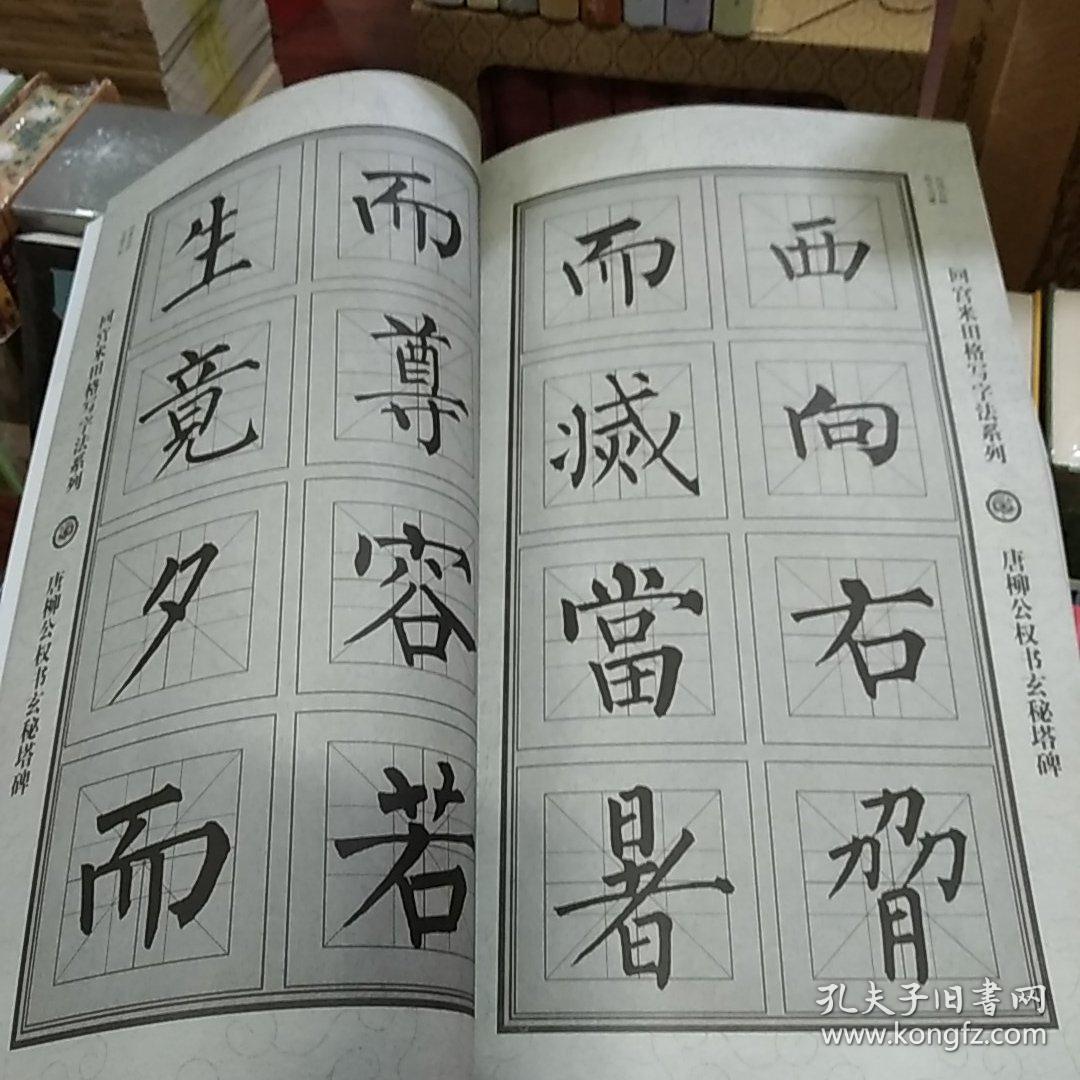 西向右脅
而滅當暑
而尊容若
生竟夕而
回宫米田格写字法系列
唐柳公权书玄秘塔碑
回宫米田格写字法系列
唐柳公权书玄秘塔碑
孔夫子旧書网
www.kongfz.com